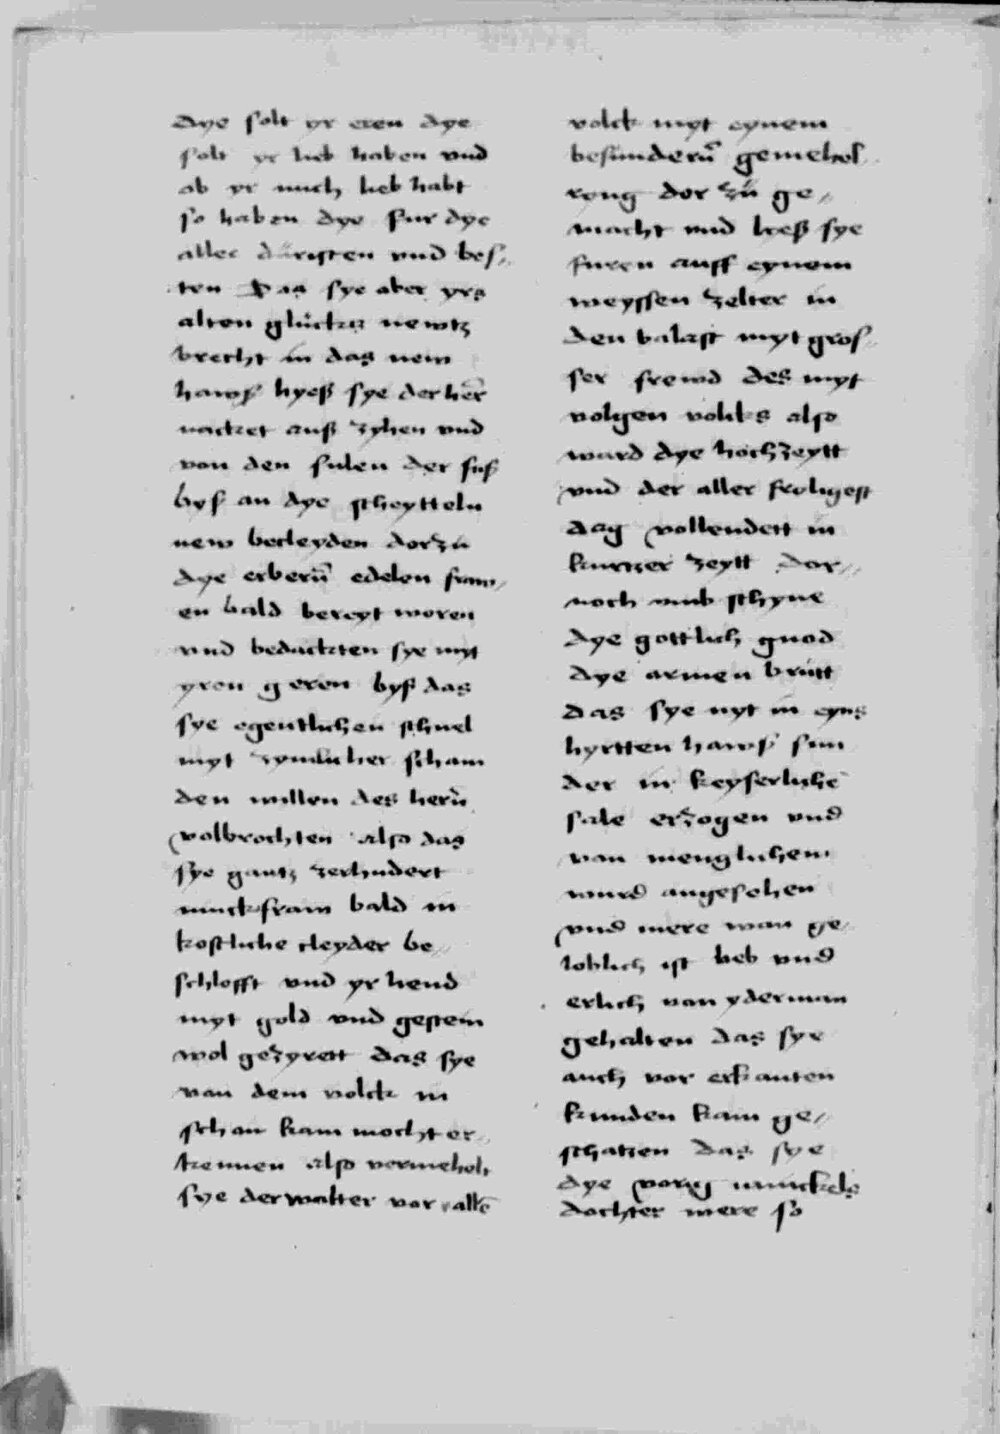 dye solt yr eren dye
solt yr lieb haben vnd
ob yr mich lieb habt
so haben dye fur dye
aller düristen vnd bes//
ten Das sye aber yrs
alten glückz newtz
brecht in das new
hawß hyeß sye der her
nacket auß zyhen vnd
von den sulen der fuß
byß an dye scheytteln
new becleyden dorzu
dye erberñ edelen fraw/
en bald bereyt woren
vnd bedackten sye myt
yren geren byß das
sye egentlichen schnel
myt zymlicher scham
den willen des herñ
volbrochten also das
sye gantz zerhudert
junckfraw bald in
kostliche cleyder be//
schlofft vnd yr hend
myt gold vnd gestein
wol gezyrett das sye
van dem volck in
schon kam mocht er//
kennen also vermehelt
sye der walter vor allē
volck myt eynem
besunderñ gemehel
ryng dor zů ge//
macht vnd ließ sye
furen auff eynem
weyssen zelter in
den balast myt gros//
ser frewd des myt
volgen volcks also
ward dye hochzeytt
vnd der aller frolichest
dag vollendett in
kurtzer zeytt dor//
noch vmb schyne
dye gottlich gnod
dye armen brütt
das sye nyt in eyns
hyrtten hawß sun
der in keyserliche
sale erzogen vnd
van menglichem
wurd angesehen
vnd mere wan ge//
loblich ist lieb vnd
erlich van yderman
gehalten das sye
auch vor erkanten
kunden kam ge//
schatzen das sye
dye vorig janickels
dochter were so